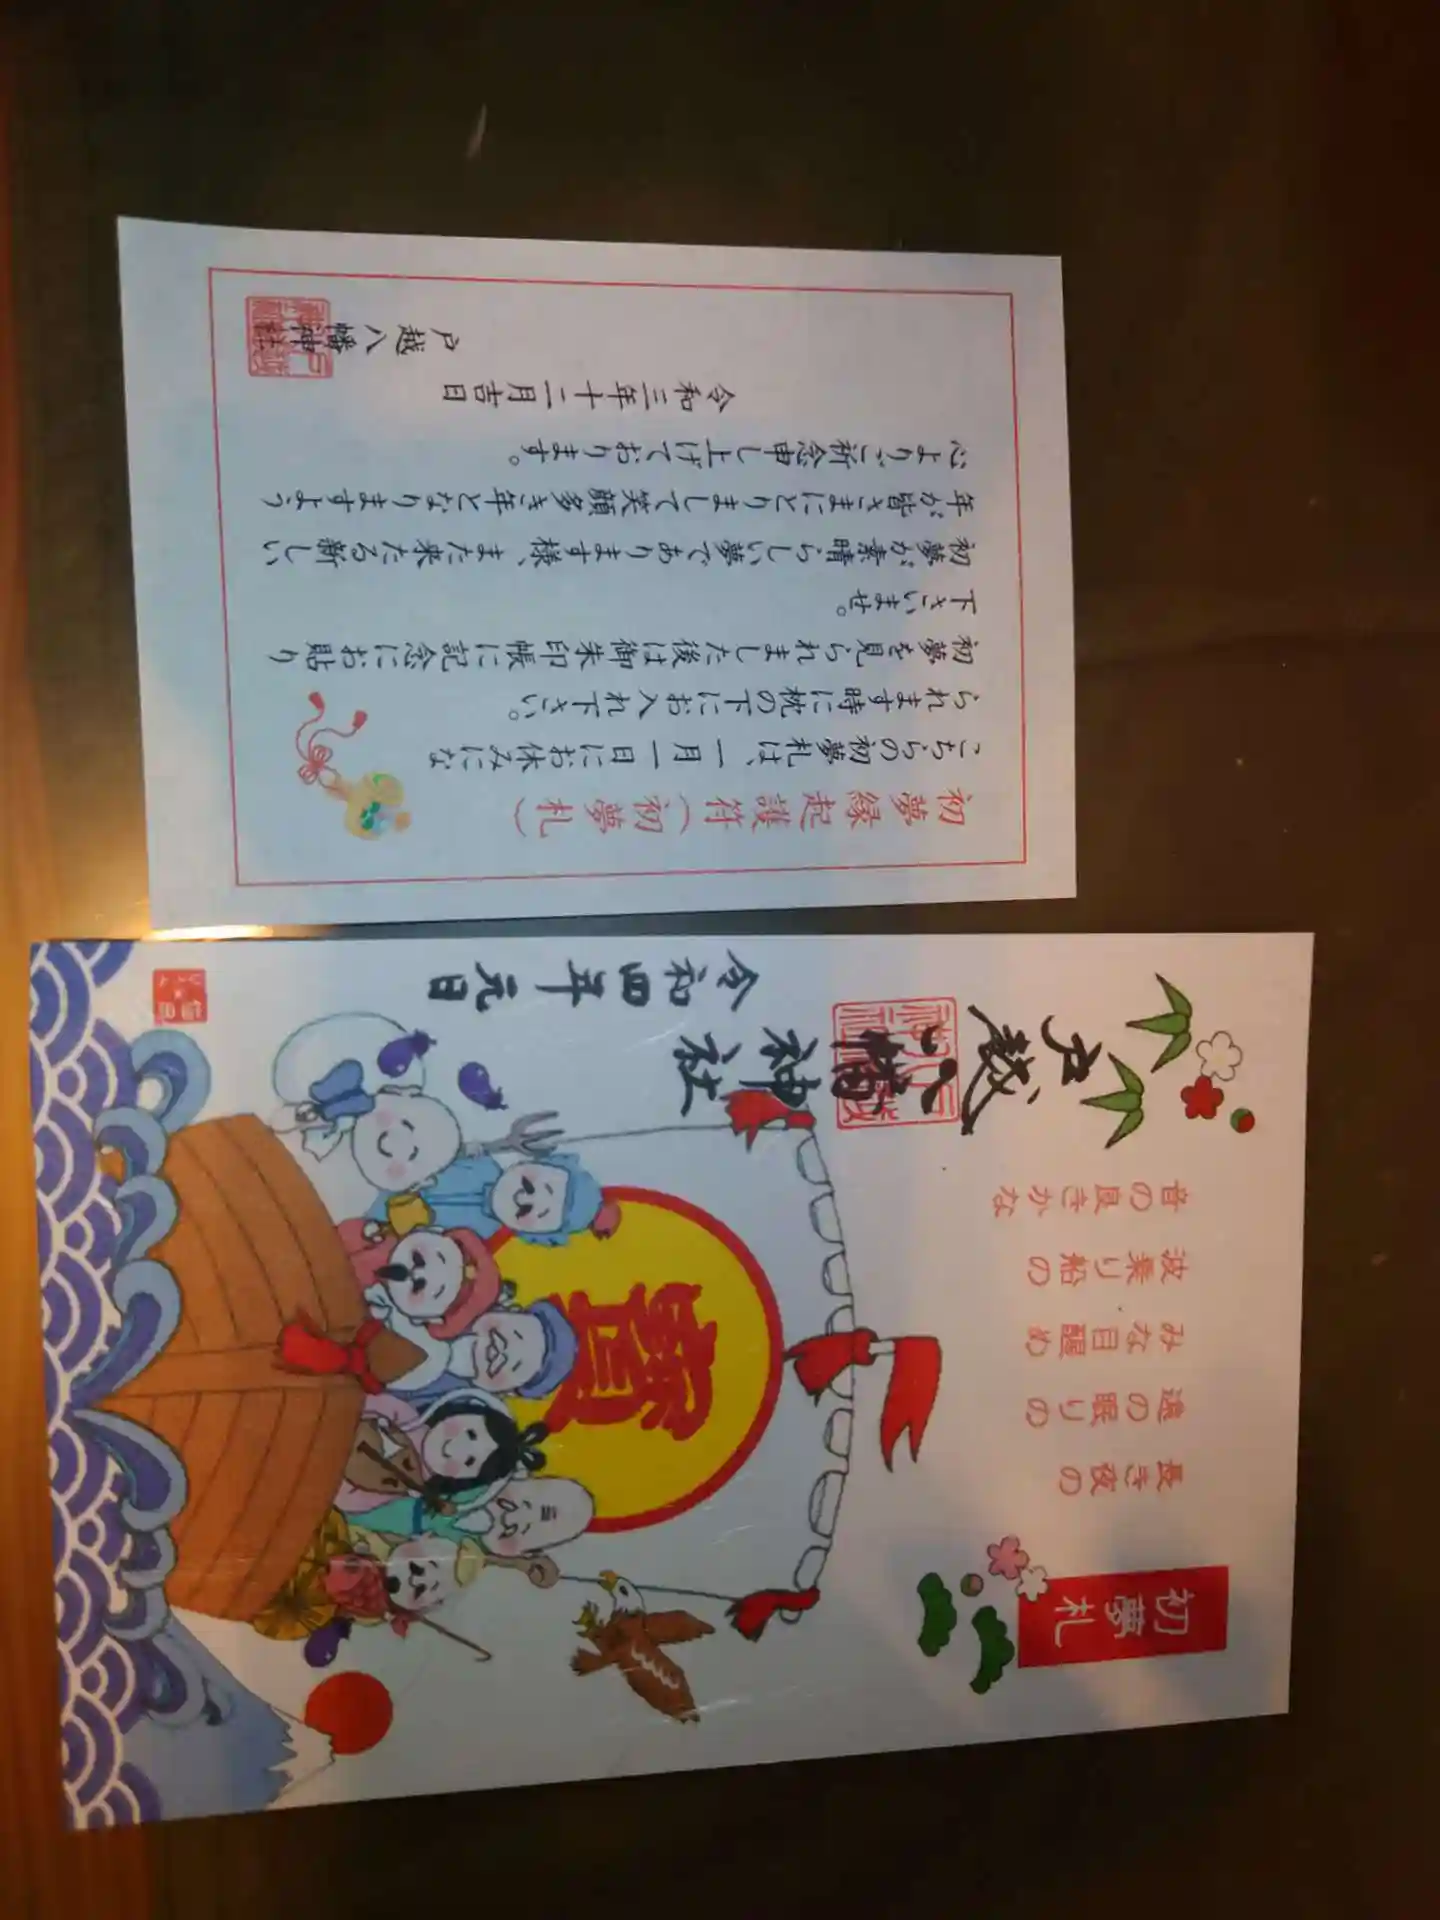 初夢札
長き夜の
遠の眠りの
みな目醒め
波乗り船の
音の良きかな
寳
戸越八幡神社
令和四年元日
初夢縁起護符(初夢札)
こちらの初夢札は、一月一日にお休みにな
られます時に枕の下にお入れ下さい。
初夢を見られました後は御朱印帳に記念にお貼り
下さいませ。
初夢が素晴らしい夢であります様、また来たる新しい
年が皆さまにとりまして笑顔多き年となりますよう
心よりご祈念申し上げております。
令和三年十二月吉日
戸越八幡神社